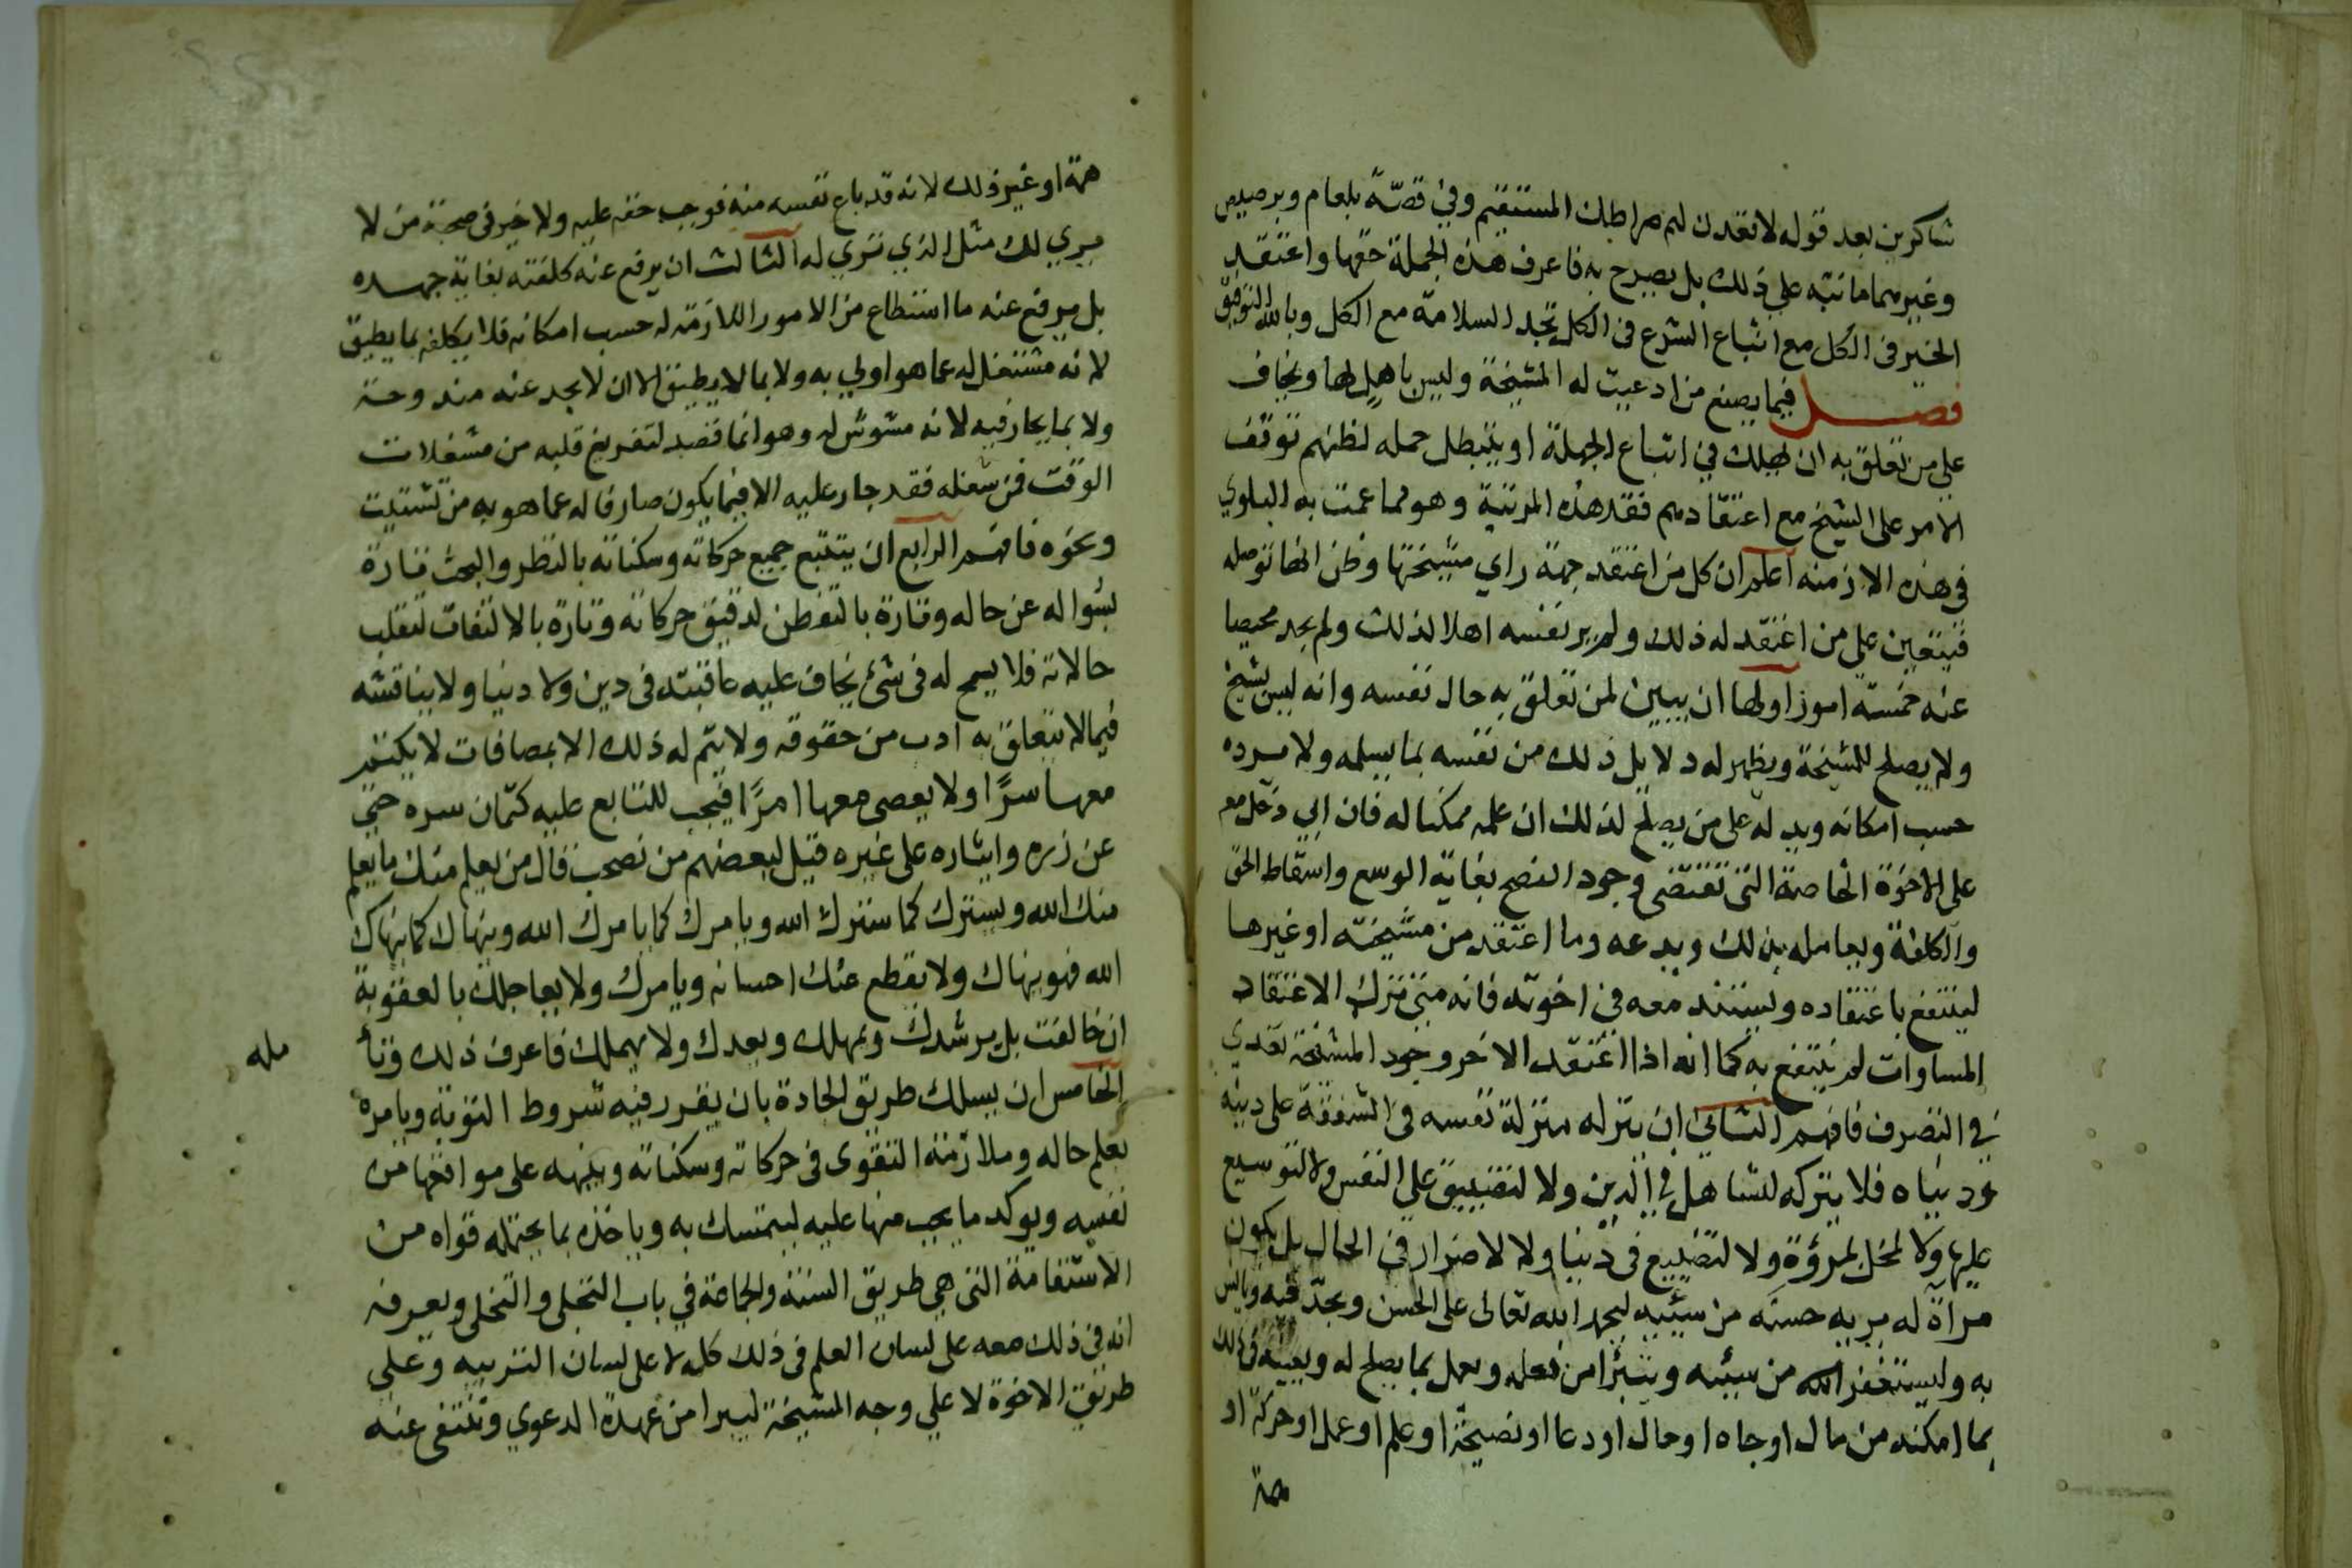 شاكرين بعد قوله لاقعدن لهم صراطك المستقيم وفي قصّة بلعام وبرصيص
وغيرهما ما نبّه علي ذلك بل يصرح به فاعرف هذه الجملة حقها واعتقد
الخير في الكل مع اتباع الشرع في الكل تجد السلامة مع الكل وبالله التوفيق
فصل فيما يصنع من ادعيت له المشيخة وليس باهل لها ويخاف
علي من تعلق به ان يهلك في اتباع الجهلة او يتبطل حمله لظنهم توقف
الامر على الشيخ مع اعتقادهم فقد هذه المرتبة وهو مما عمت به البلوي
في هذه الازمنه اعلم ان كل من اعتقد جهة راي مشيختها وظن انها توصله
فيتعين علي من اعتقد له ذلك ولم ير نفسه اهلا لذلك ولم يجد محيصا
عنه خمسة امور اولها ان يبين لمن تعلق به حال نفسه وانه ليس بشيخ
ولا يصلح للمشيخة ويظهر له دلايل ذلك من نفسه بما يسلمه ولا يرده
حسب امكانه ويدله على من يصلح لذلك ان علمه ممكنا له فان ابي دخل معه
على الاخوة الخاصة التي تقتضي وجود النصح بغاية الوسع واسقاط الحق
والكلفة ويعامله بذلك ويدعه وما اعتقد من مشيخته او غيرها
لينتفع باعتقاده ويستند معه في اخوته فانه متى ترك الاعتقاد
المساوات لم ينتفع به كما انه اذا اعتقد الاخر وجود المشيخة تعدي
في التصرف فافهم الثاني ان ينزله منزلة نفسه في الشفقة على دينه
ودنياه فلا يتركه لتساهل في الدين ولا لتضييق علي النفس ولا لتوسيع
عليها ولا لمخل بمروءة ولا لتضييع في دنيا ولا لاضرار في الحال بل يكون
مرآة له يريه حسنه من سيئيه ليحمد الله تعالى على الحسن ويجدّ فيه
به وليستغفر الله من سيئه ويتبرا من فعله ويعمل بما يصلح له ويعينه في ذلك
بما امكنه من مال او جاه او حال او دعا او نصيحة او علم او عمل او حركة او
همة
همة او غير ذلك لانه قد باع نفسه منه فوجب حقه عليه ولا خير في صحبة من لا
يري لك مثل الذي تري له الثالث ان يرفع عنه كلفته بغاية جهده
بل يرفع عنه ما استطاع من الامور اللازمة له حسب امكانه فلا يكلفه بما يطيق
لانه مشتغل له عما هو اولي به ولا بما لا يطيق الا ان لا يجد عنه مندوحة
ولا بما يحار فيه لانه مشوش له وهو انما قصد لتفريغ قلبه من مشغلات
الوقت فمن شغله فقد جار عليه الا فيما يكون صارفا له عما هو به من تشتيت
ونحوه فافهم الرابع ان يتتبع جميع حركاته وسكناته بالنظر والبحث فتارة
بسواله عن حاله وتارة بالتفطن لدقيق حركاته وتارة بالالتفات لتقلب
حالاته فلا يسمح له في شئ يخاف عليه عاقبته في دين ولا دنيا ولا يناقشه
فيما لا يتعلق به ادب من حقوقه ولا يتم له ذلك الا بمصافات لا يكتتم
معها سرًا ولا يعصى معها امرًا فيجب للتابع عليه كتمان سره حتى
عن زره وايثاره على غيره قيل لبعضهم من نصحب قال من يعلم منك ما يعلم
منك الله ويسترك كما سترك الله ويامرك كما يامرك الله وينهاك كما ينهاك
الله فهو ينهاك ولا يقطع عنك احسانه ويامرك ولا يعاجلك بالعقوبة
ان خالفت بل يرشدك ويمهلك ويعدك ولا يهملك فاعرف ذلك
مله
الخامس ان يسلك طريق الجادة بان يقرر فيه شروط التوبة ويامره
بعلم حاله وملازمة التقوى في حركاته وسكناته وينبهه على مواقعها من
نفسه ويوكد ما يجب منها عليه ليتمسك به وياخذه بما يحتمله قواه من
الاستقامة التي هي طريق السنة والجماعة في باب التحلي والتخلي ويعرفه
انه في ذلك معه على لسان العلم في ذلك كله لا على لسان التربيه وعلي
طريق الاخوة لا علي وجه المشيخة ليبرا من عهدة الدعوي وتنتفي عنه